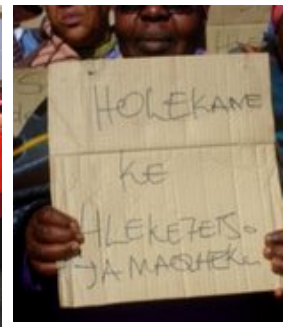 HOLEKANE
KE
HLEKEFETSO
JA MAQHEKU